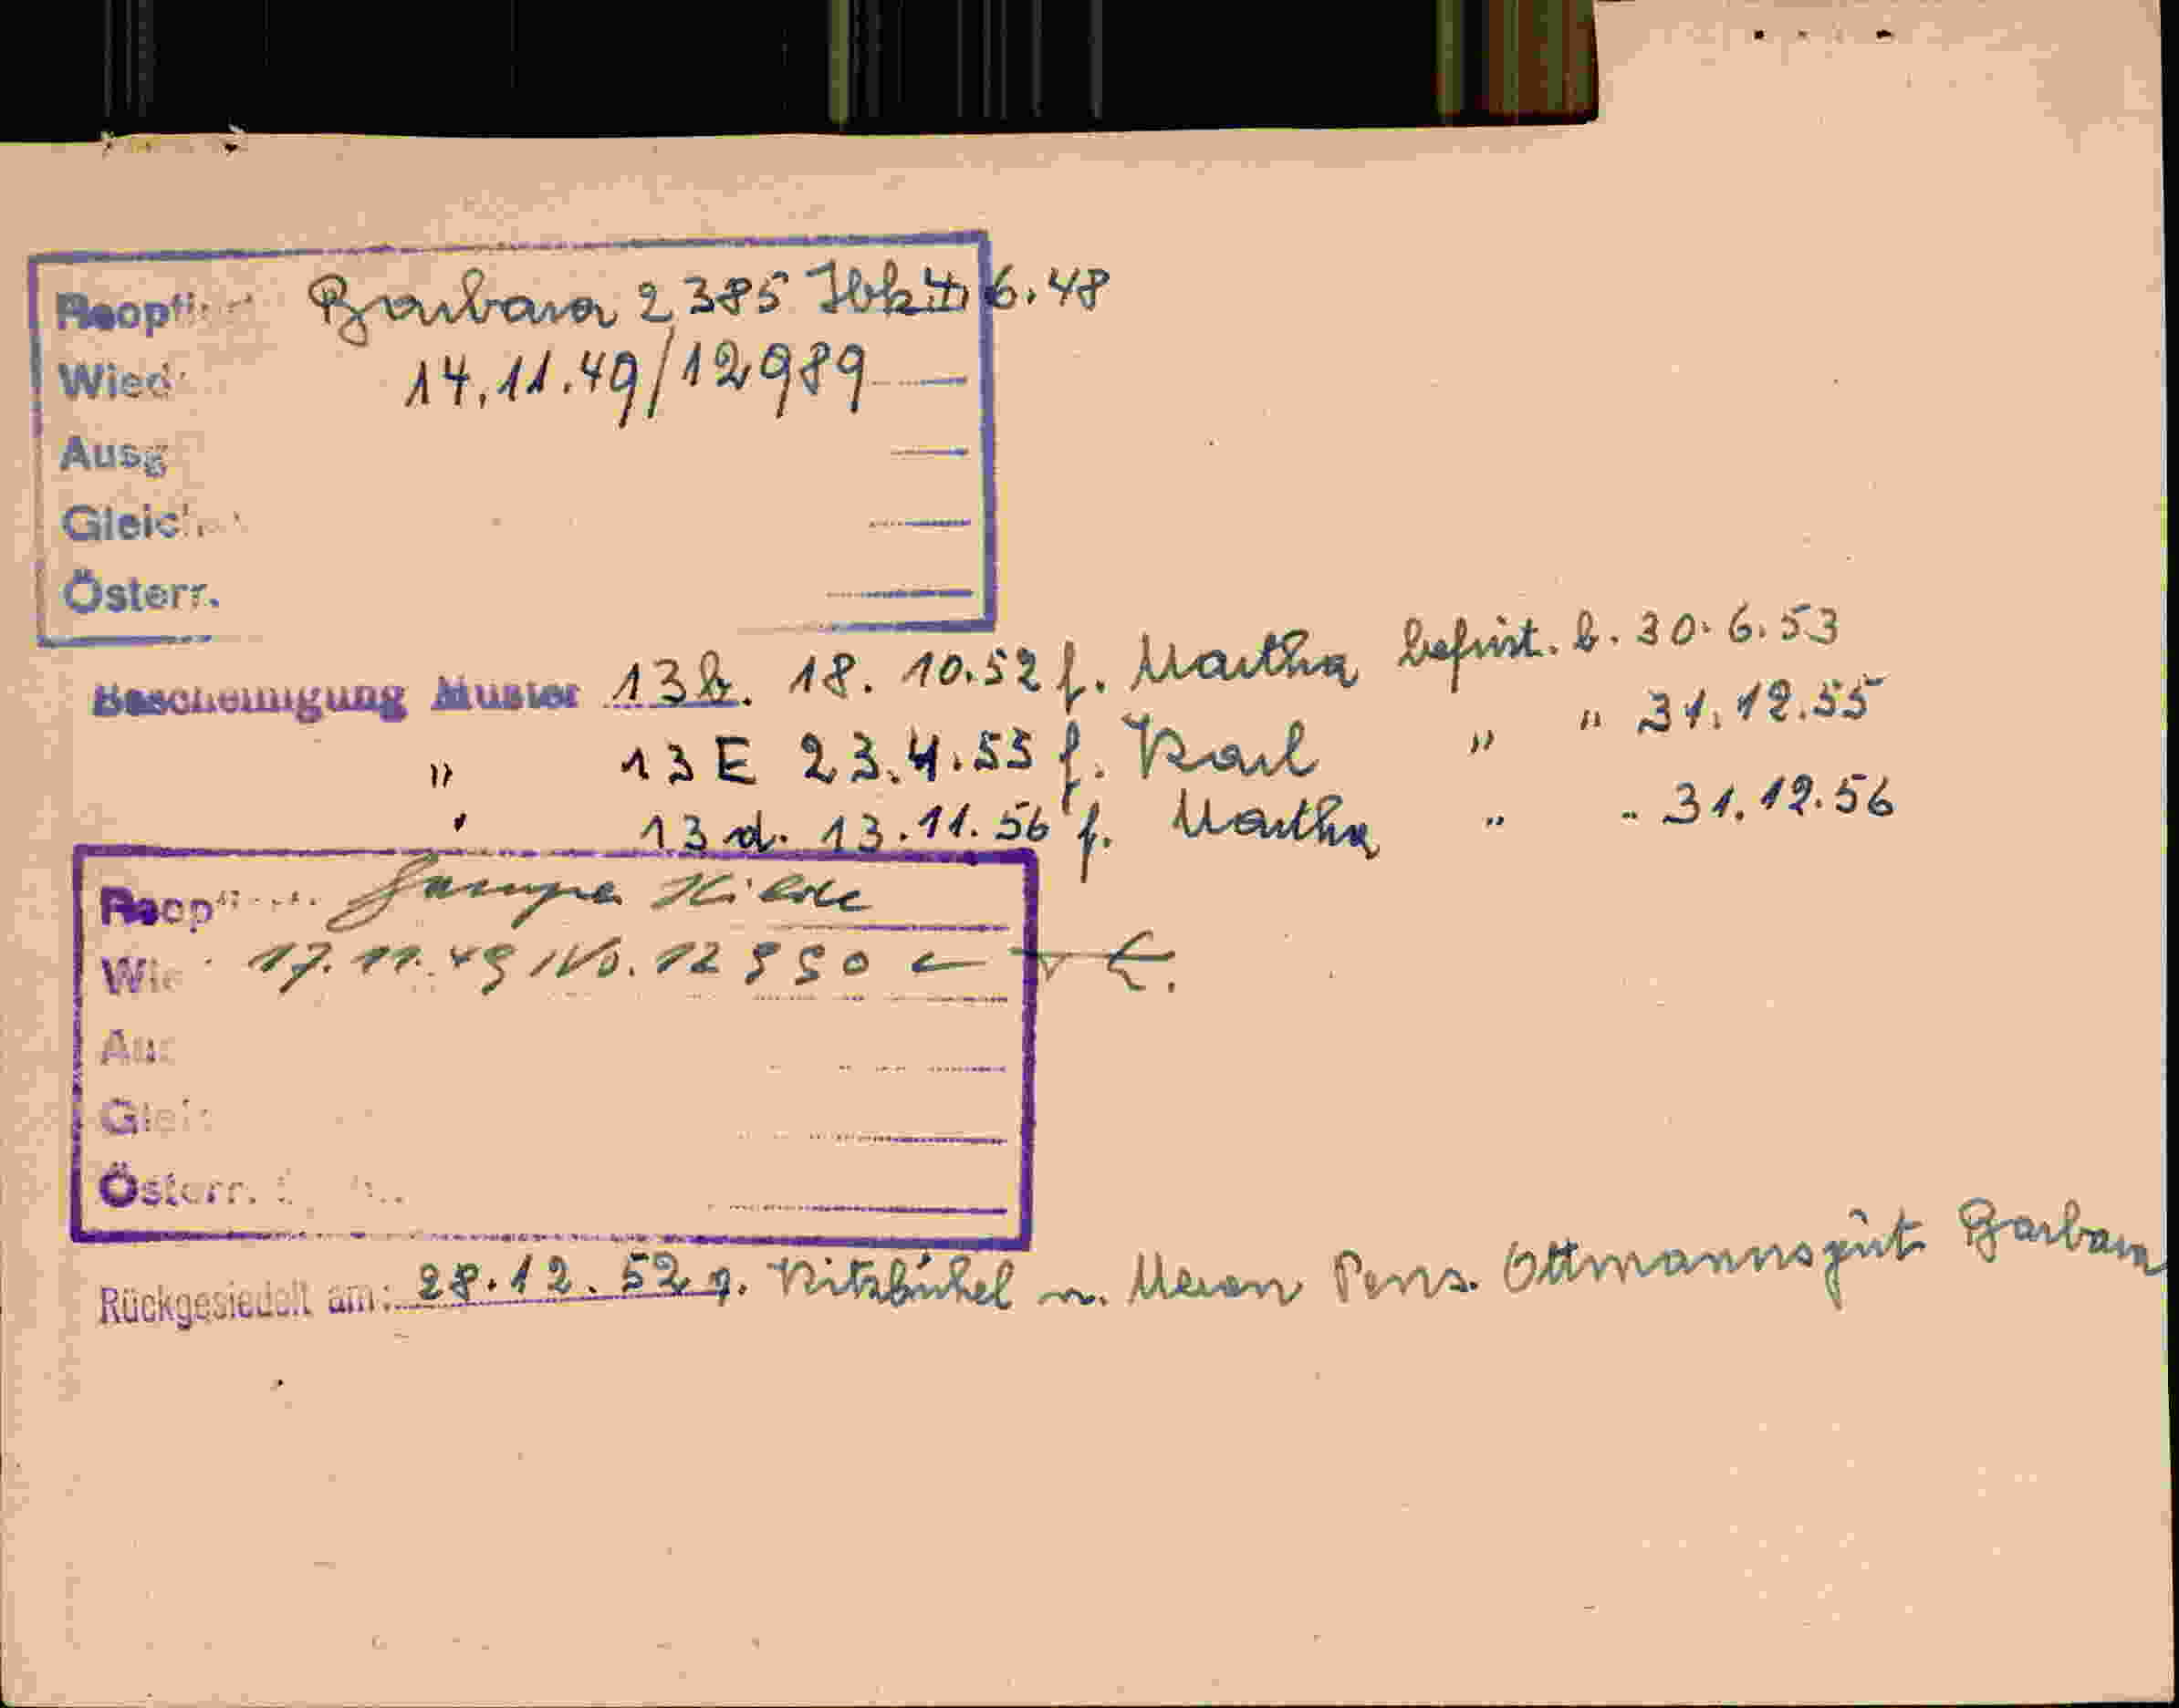 Reopt Barbara 2385 Ibk II 6.48
Wied 14.11.49/12989
Ausg
Gleich
Österr.
Bescheinigung Muster 13b. 18.10.52 f. Martha befrist. b. 30.6.53
" 13E 23.4.55 f. Karl " " 31.12.55
" 13d. 13.11.56 f. Martha " " 31.12.56
Reopt Hilde
Wie 17.11.49 No. 12990
Aus
Glei
Österr.
Rückgesiedelt am: 28.12.52 v. Kitzbühel n. Meran Pens. Ottmannsgut Barbara